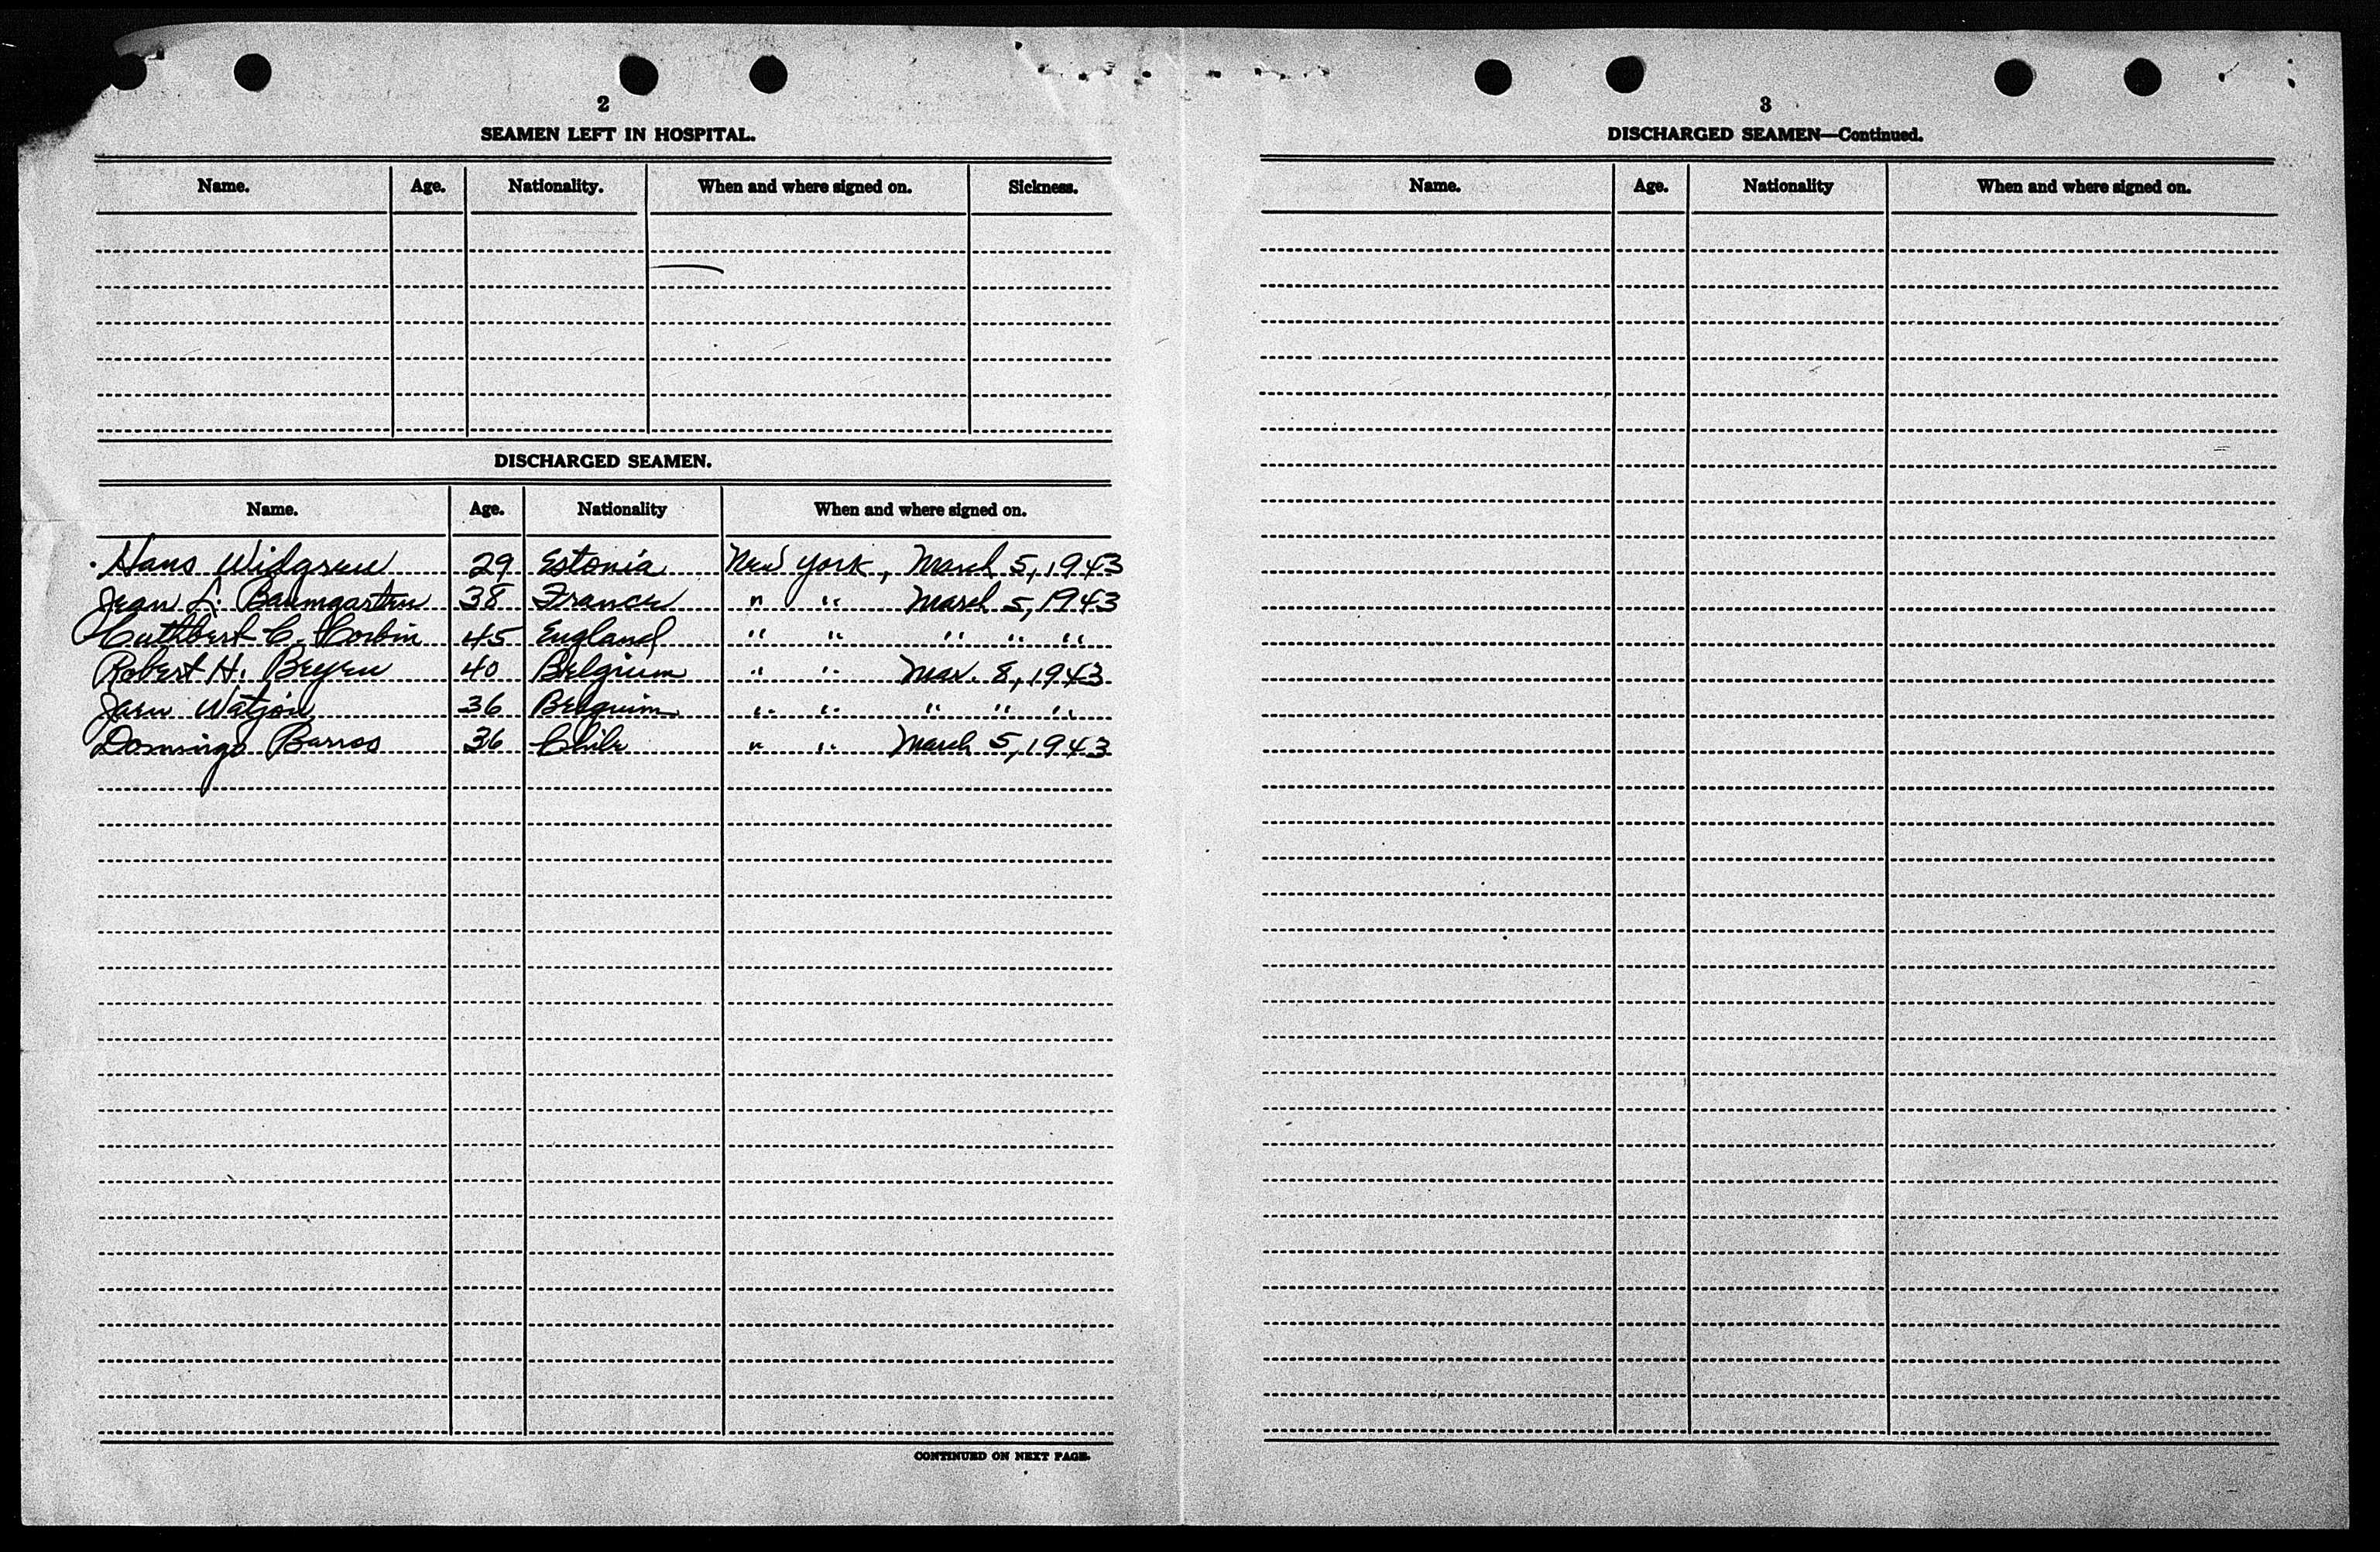 2
SEAMEN LEFT IN HOSPITAL.
Name. Age. Nationality. When and where signed on. Sickness.
DISCHARGED SEAMEN.
Name. Age. Nationality When and where signed on.
Hans Widgren 29 Estonia New York, March 5, 1943
Jean L. Baumgarten 38 France " " March 5, 1943
Cuthbert C. Corbin 45 England " " " " "
Robert H. Beyen 40 Belgium " " Mar. 8, 1943
36 Belguim " " " " "
Domingo Barros 36 Chile " " March 5, 1943
CONTINUED ON NEXT PAGE.
3
DISCHARGED SEAMEN—Continued.
Name. Age. Nationality When and where signed on.